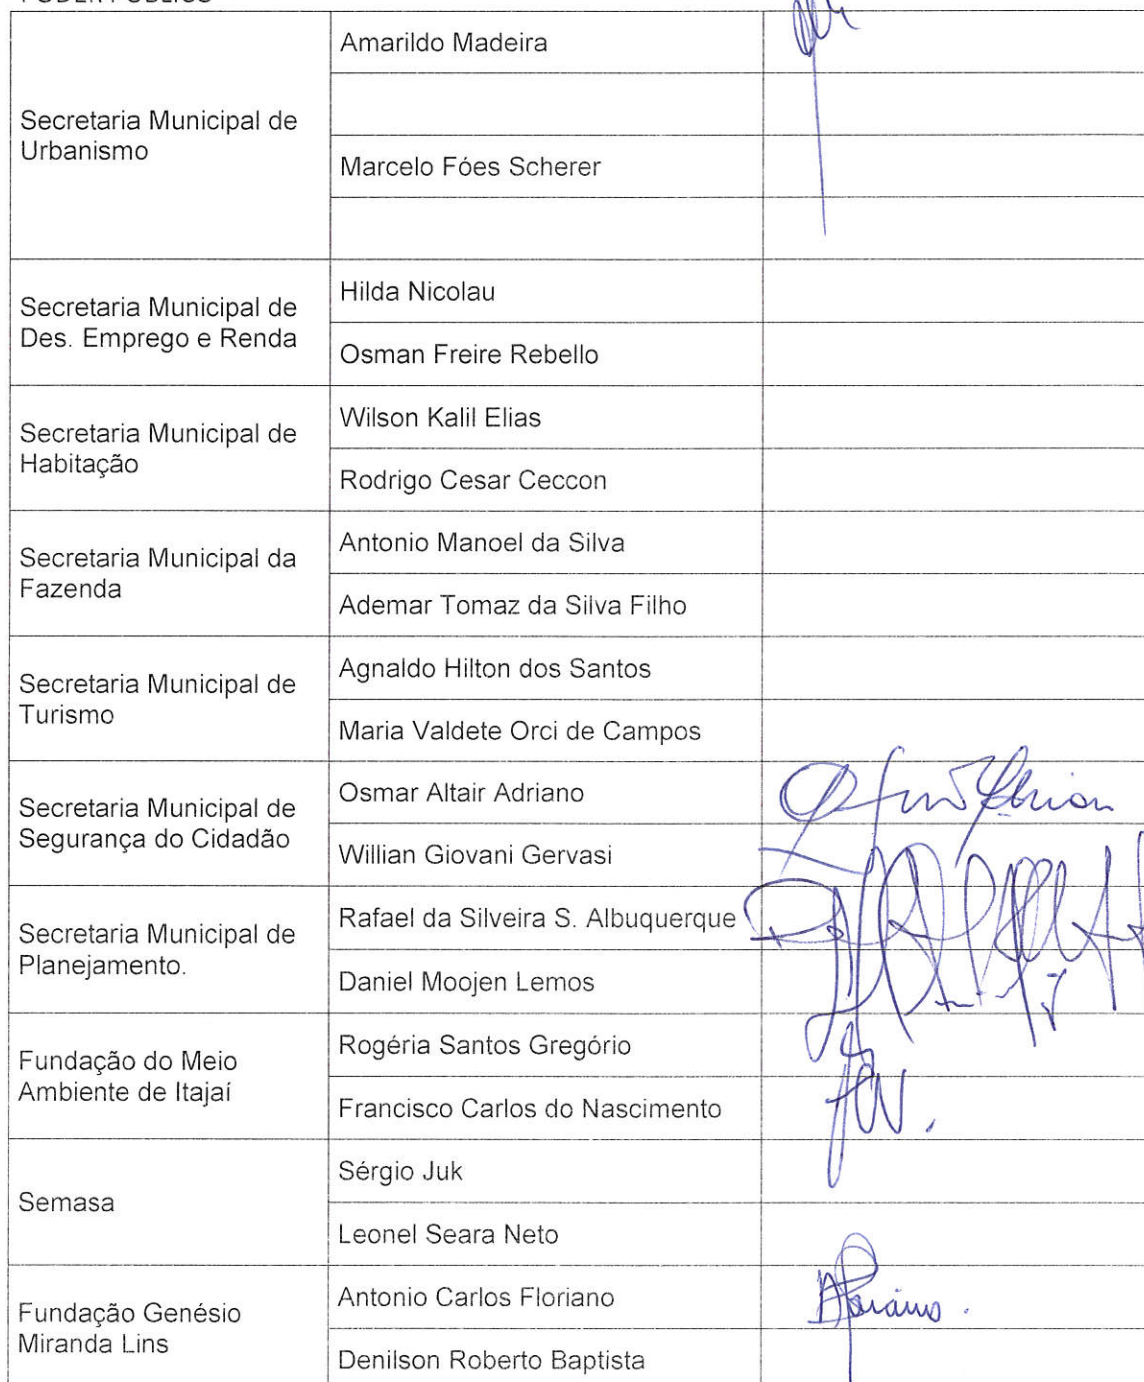 PODER PÚBLICO
Secretaria Municipal de
Urbanismo
Amarildo Madeira
Marcelo Fóes Scherer
Secretaria Municipal de
Des. Emprego e Renda
Hilda Nicolau
Osman Freire Rebello
Secretaria Municipal de
Habitação
Wilson Kalil Elias
Rodrigo Cesar Ceccon
Secretaria Municipal da
Fazenda
Antonio Manoel da Silva
Ademar Tomaz da Silva Filho
Secretaria Municipal de
Turismo
Agnaldo Hilton dos Santos
Maria Valdete Orci de Campos
Secretaria Municipal de
Segurança do Cidadão
Osmar Altair Adriano
Willian Giovani Gervasi
Secretaria Municipal de
Planejamento.
Rafael da Silveira S. Albuquerque
Daniel Moojen Lemos
Fundação do Meio
Ambiente de Itajaí
Rogéria Santos Gregório
Francisco Carlos do Nascimento
Semasa
Sérgio Juk
Leonel Seara Neto
Fundação Genésio
Miranda Lins
Antonio Carlos Floriano
Denilson Roberto Baptista